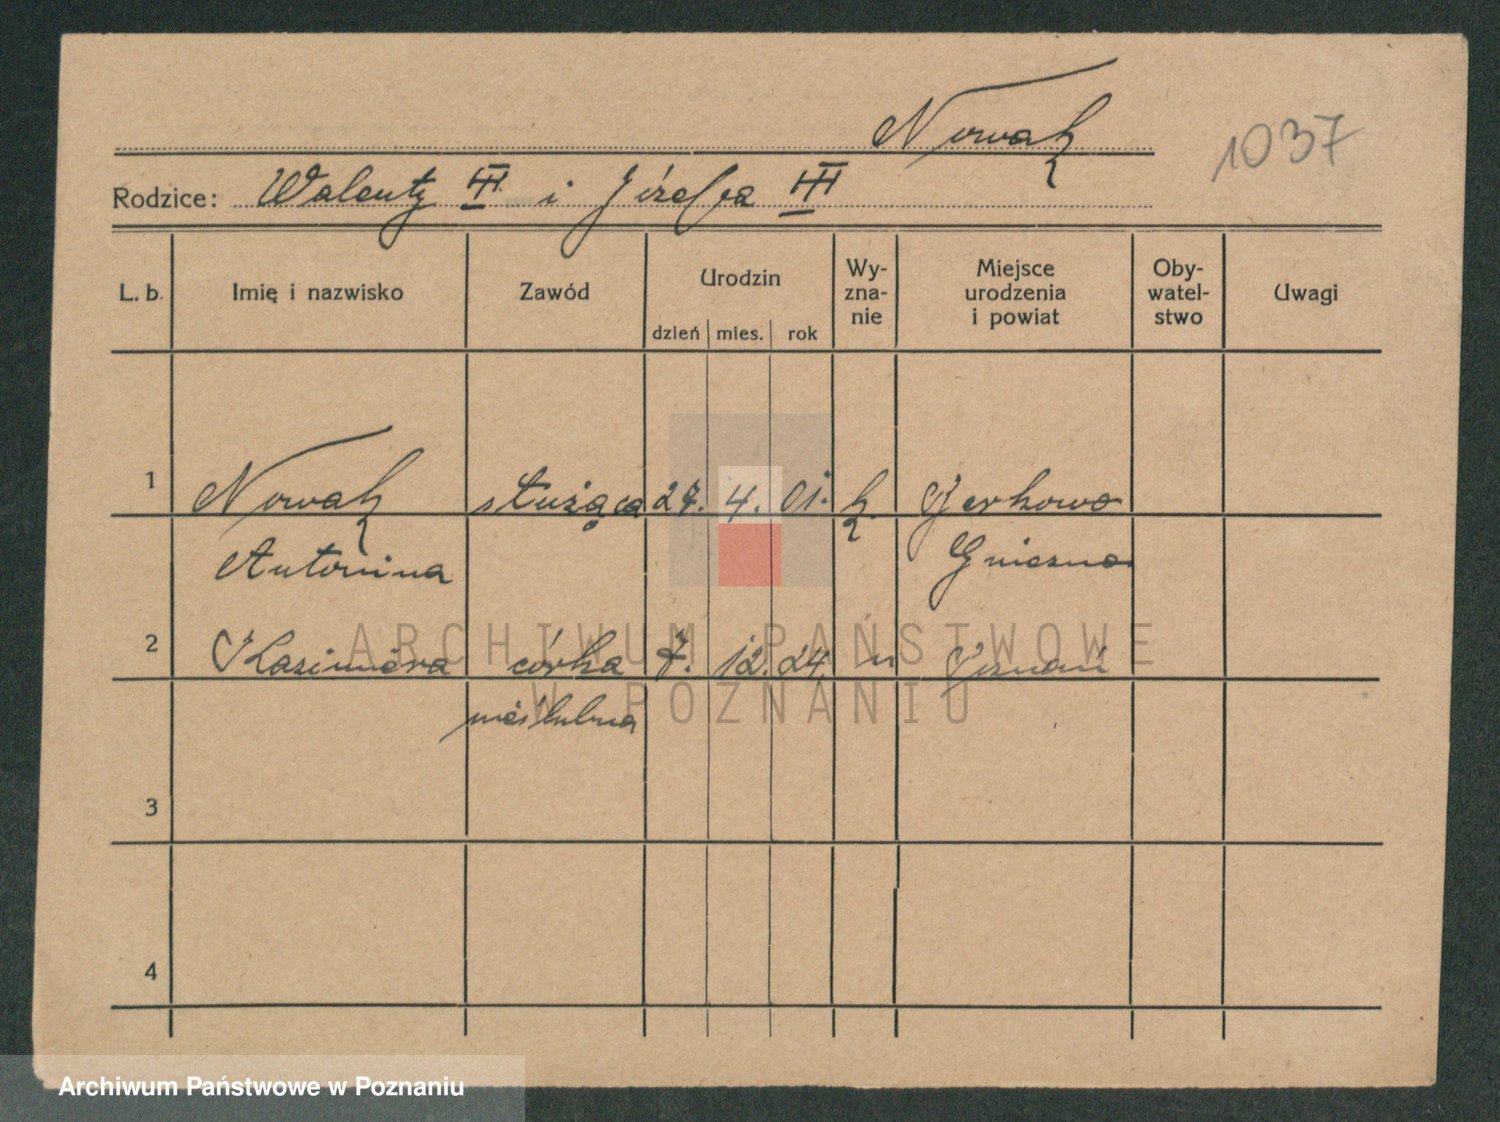 Nowak
1037
Rodzice: Walenty i Józefa
L. b. Imię i nazwisko Zawód Urodzin dzień mies. rok Wy-zna-nie Miejsce urodzenia i powiat Oby-watel-stwo Uwagi
1 Nowak służąca 27. 4. 01. k.
Antonina Gniezno
2 Kazimiera córka 7. 12. 24. " Poznań
nieślubna
3
4
ARCHIWUM PAŃSTWOWE
W POZNANIU
Archiwum Państwowe w Poznaniu